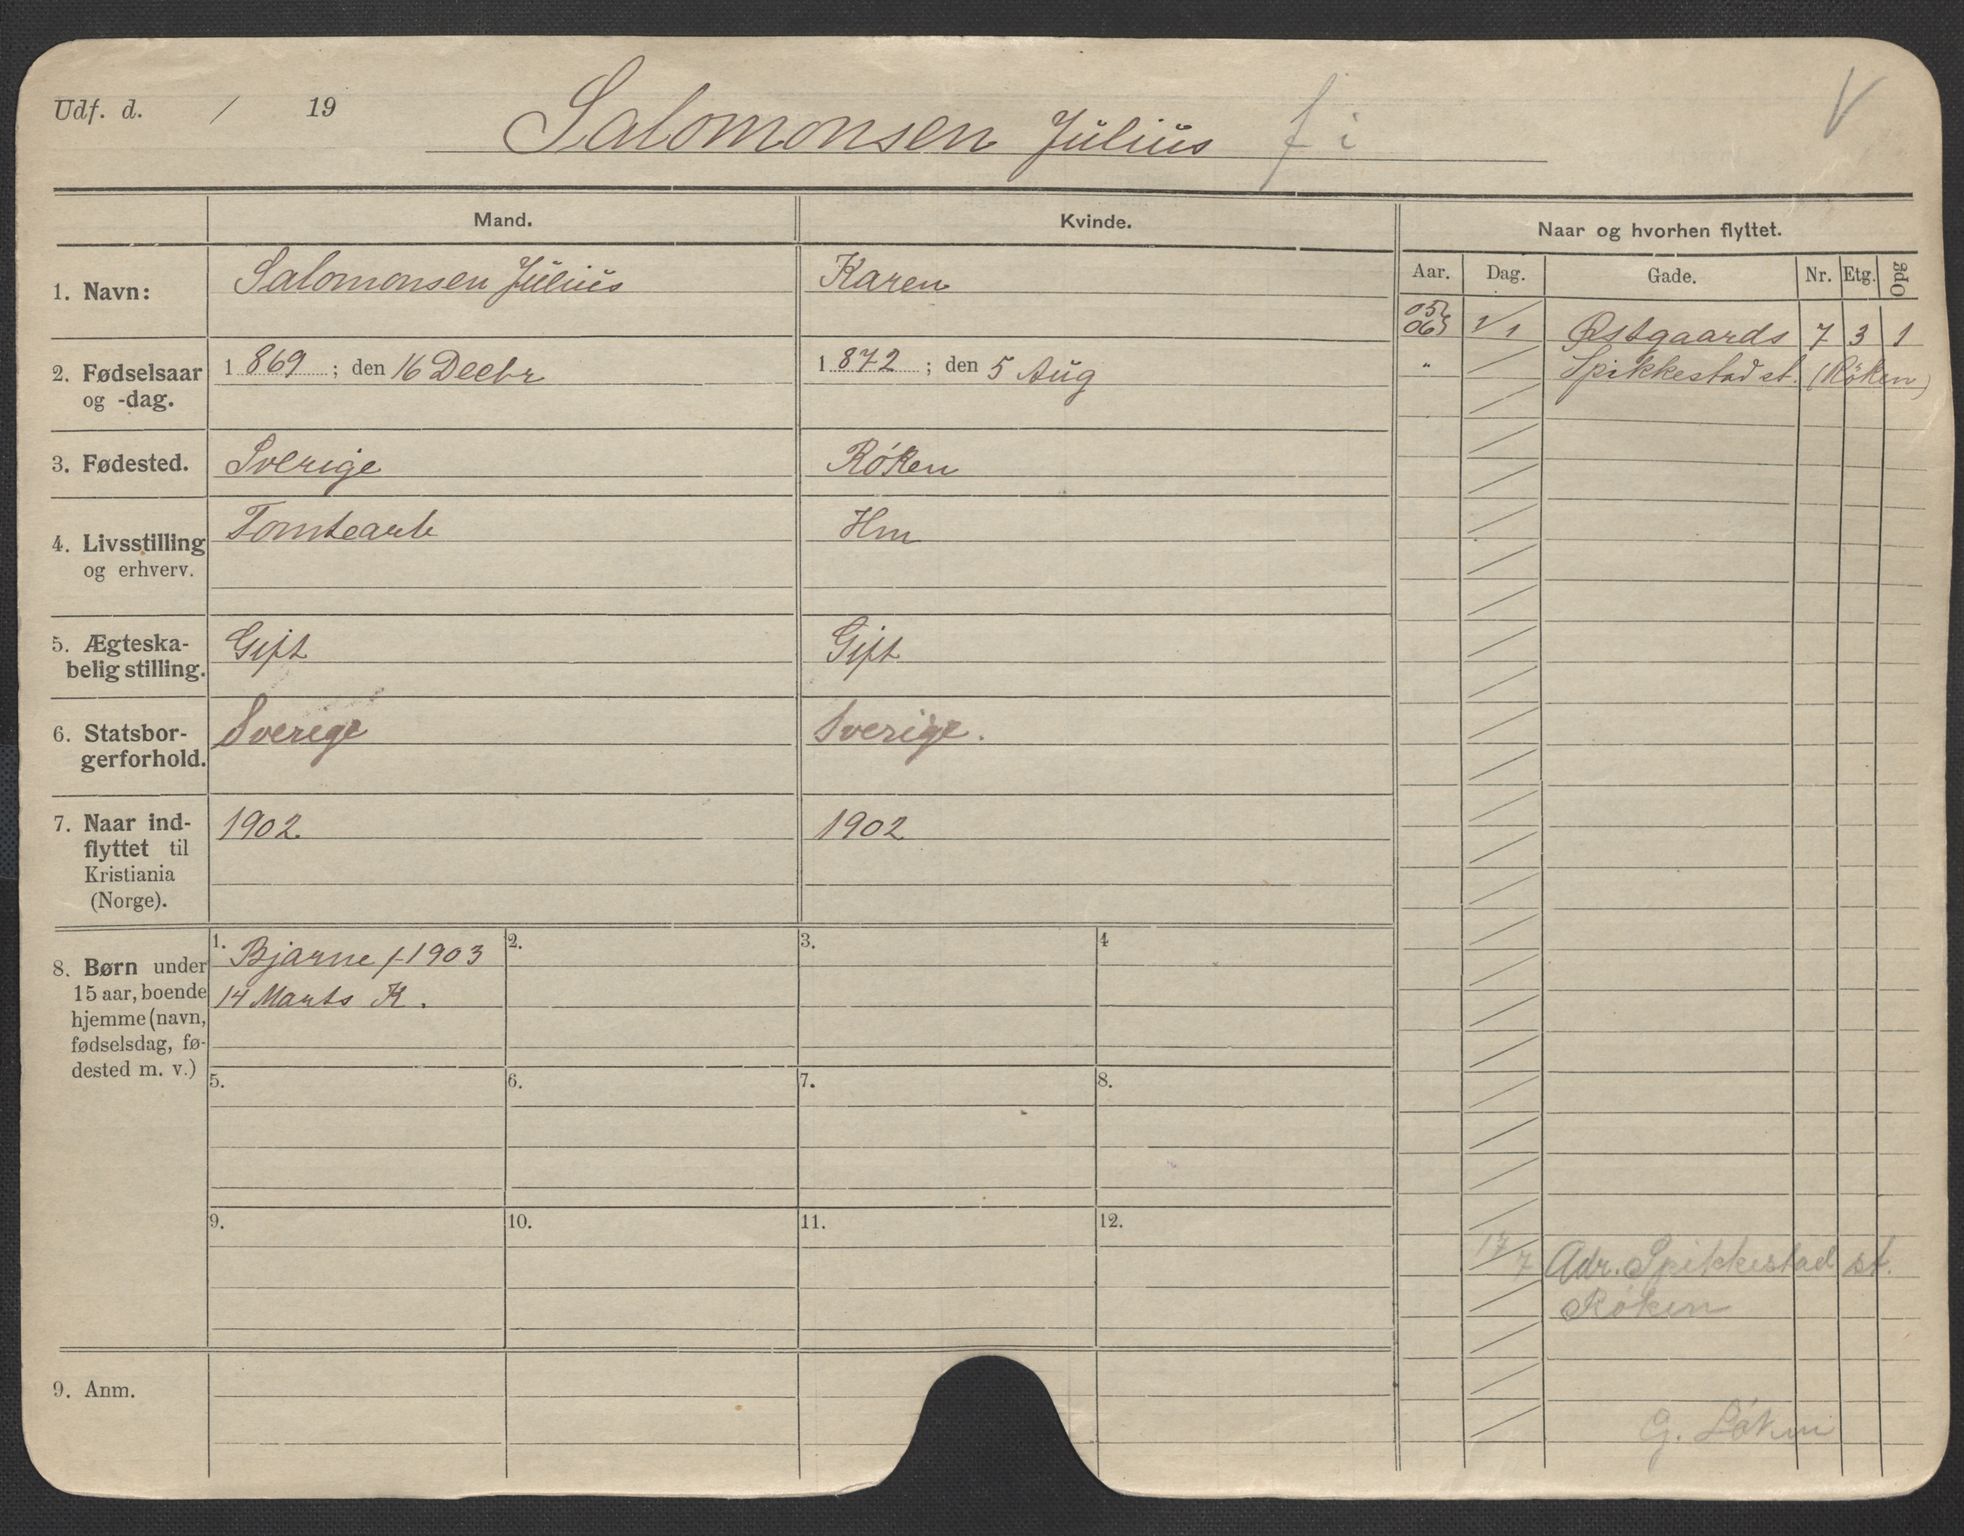 Udf. d. / 19
Salomonsen Julius
V
Mand.
Kvinde.
Naar og hvorhen flyttet.
Aar. Dag. Gade. Nr. Etg. Opg
1. Navn:
Salomonsen Julius
Karen
05
06 1/1 Østgaards 7 3 1
" Spikkestad st. (Røken)
2. Fødselsaar
og -dag.
1869; den 16 Decbr
1872; den 5 Aug
3. Fødested.
Sverige
Røken
4. Livsstilling
og erhverv.
Tomtearb
Hm
5. Ægteska-
belig stilling.
Gift
Gift
6. Statsbor-
gerforhold.
Sverige
Sverige.
7. Naar ind-
flyttet til
Kristiania
(Norge).
1902
1902
8. Børn under
15 aar, boende
hjemme (navn,
fødselsdag, fø-
dested m. v.)
1. Bjarne f 1903
14 Marts K.
2.
3.
4
5.
6.
7.
8.
9.
10.
11.
12.
17/7 Adr. Spikkestad st.
Røken
9. Anm.